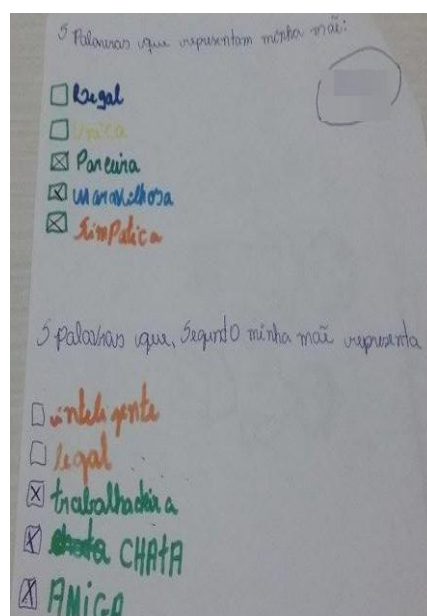 5 Palavras que representam minha mãe:
Legal
Única
Parceira
Maravilhosa
Simpatica
5 palavras que, Segundo minha mãe representa
inteligente
legal
trabalhadeira
chata CHATA
AMIGA